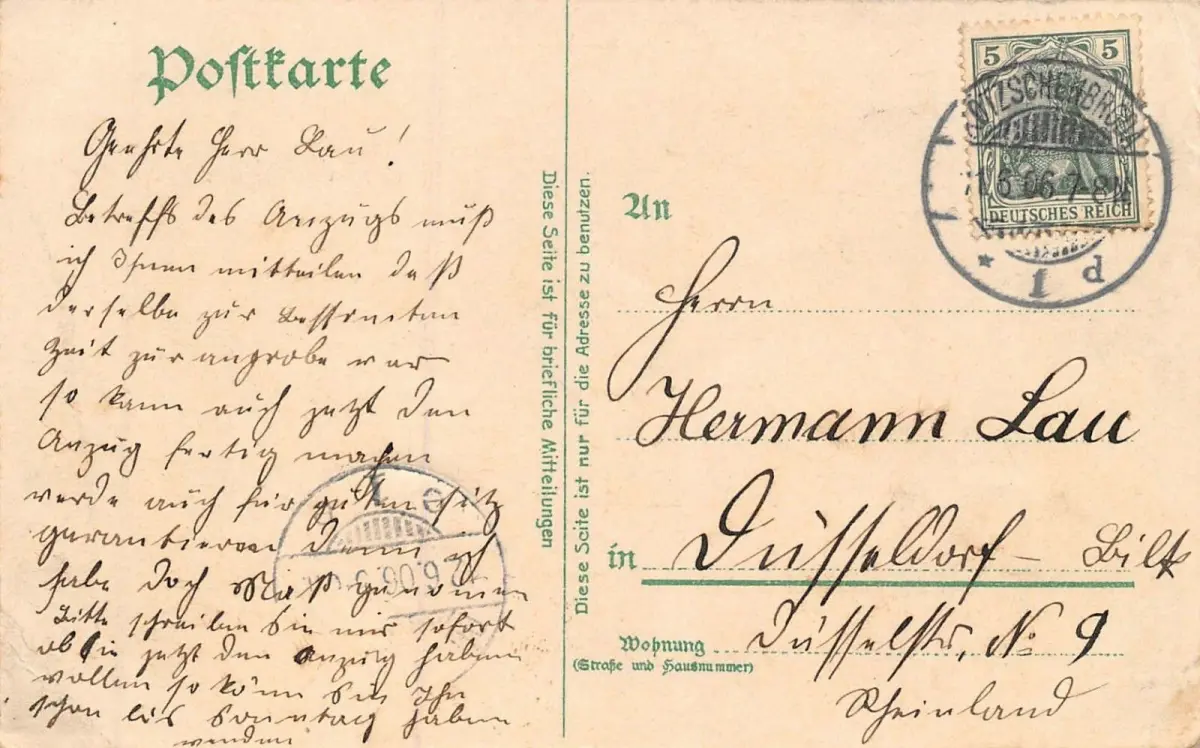 Postkarte
Geehrte Herr Lau!
Betreffs des Anzugs muß
ich Ihnen mitteilen daß
derselbe zur
Zeit zur angrobe war
so kann auch jetzt den
Anzug fertig machen
werde auch für guten sitz
garantieren denn ich
habe doch Maß genomen
Bitte schreiben Sie mir sofort
ob Sie jetzt den Anzug haben
wollen so könn Sie ihn
schon bis Sonntag haben
wenden
Diese Seite ist für briefliche Mitteilungen
Diese Seite ist nur für die Adresse zu benutzen.
5 5
DEUTSCHES REICH
6 06 7-8N
* 1 d
1 e
2.6.06.
An
Herrn
Hermann Lau
in Düsseldorf – Bilk
Wohnung Düsselstr, No 9
(Straße und Hausnummer)
Rheinland